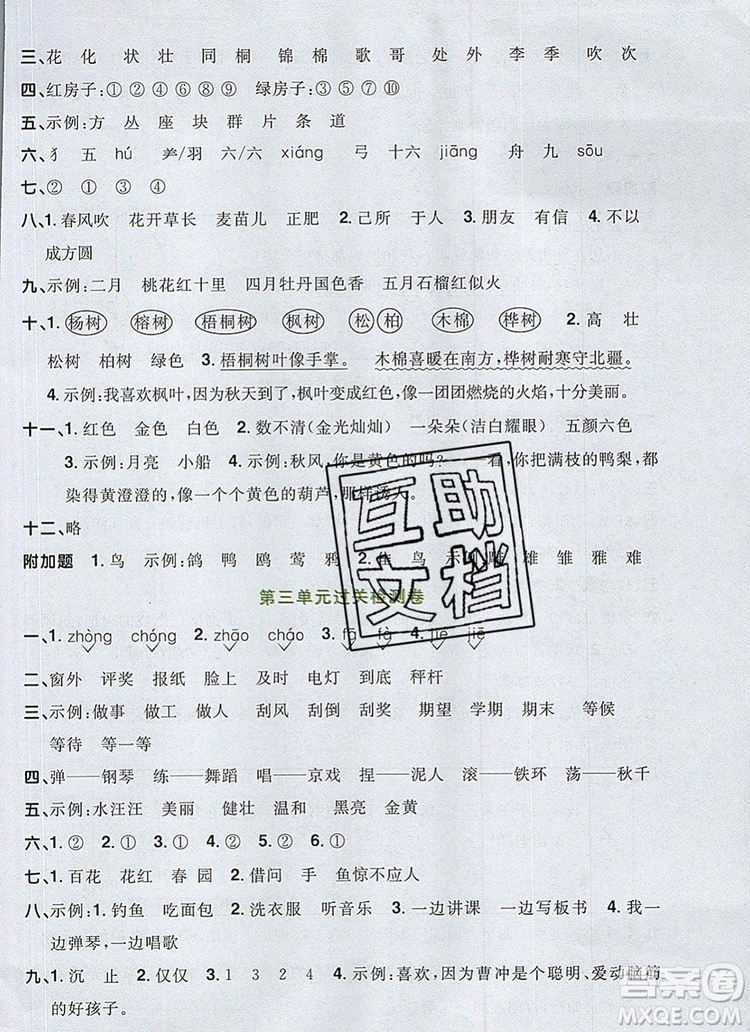 三、花 化 状 壮 同 桐 锦 棉 歌 哥 处 外 李 季 吹 次
四、红房子:①②④⑥⑧⑨ 绿房子:③⑤⑦⑩
五、示例:方 丛 座 块 群 片 条 道
六、犭 五 hú 羽 六/六 xiáng 弓 十六 jiāng 舟 九 sōu
七、② ① ④
八、1.春风吹 花开草长 麦苗儿 正肥 2.己所 于人 3.朋友 有信 4.不以
成方圆
九、示例:二月 桃花红十里 四月牡丹国色香 五月石榴红似火
十、1.杨树 榕树 梧桐树 枫树 松 柏 木棉 桦树 2.高 壮
松树 柏树 绿色 3.梧桐树叶像手掌。 木棉喜暖在南方,桦树耐寒守北疆。
4.示例:我喜欢枫叶,因为秋天到了,枫叶变成红色,像一团团燃烧的火焰,十分美丽。
十一、1.红色 金色 白色 2.数不清(金光灿灿) 一朵朵(洁白耀眼) 五颜六色
3.示例:月亮 小船 4.示例:秋风,你是黄色的吗? 你把满枝的鸭梨,都
染得黄澄澄的,像一个个黄色的葫芦,那样诱人。
十二、略
附加题 1.鸟 示例:鸽 鸭 鸥 莺 鸦 2.隹 鸟 示例:雕 雄 雏 雅 难
第三单元过关检测卷
一、1.zhòng chóng 2.zhāo cháo 3. 4. jiē
二、窗外 评奖 报纸 脸上 及时 电灯 到底 秤杆
三、示例:做事 做工 做人 刮风 刮倒 刮奖 期望 学期 期末 等候
等待 等一等
四、弹——钢琴 练——舞蹈 唱——京戏 捏——泥人 滚——铁环 荡——秋千
五、示例:水汪汪 美丽 健壮 温和 黑亮 金黄
六、1.② ① 2.① 3.① ② 4.① ② 5.①
七、1.百花 花红 春 园 2.借问 手 鱼惊不应人
八、示例:1.钓鱼 吃面包 2.洗衣服 听音乐 3.一边讲课 一边写板书 4.我一
边弹琴,一边唱歌
九、1.沉 止 2.仅仅 3.1 3 2 4 4.示例:喜欢,因为曹冲是个聪明、爱动脑筋
的好孩子。
互助
文档
答案圈
MXQE.COM